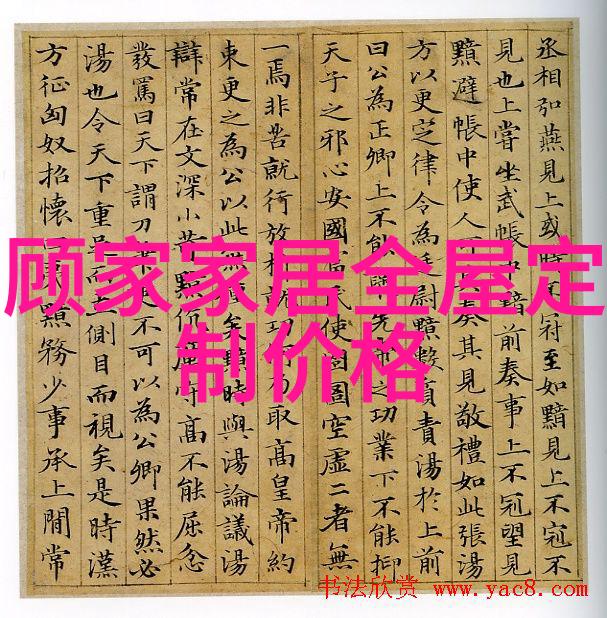 丞相弘燕見上或時不冠至如黯見上不冠不
見也上嘗坐武帳中黯前奏事上不冠望見
黯避帳中使人奏其見敬禮如此張湯
方以更定律令為廷尉黯數質責湯於上前
曰公為正卿上不能先之功業下不能抑
天子之邪心安國富使囹圄空虛二者無
一焉非苦就行放析就功乃取高皇帝約
東更之為公以此無矣黯時與湯論議湯
辯常在文深小苛黯伉厲守高不能屈忿
發罵曰天下謂刀吏不可以為公卿果然必
湯也令天下重足而立側目而視矣是時漢
方征匈奴招懷黯務少事承上閒常
顾家家居全屋定
制价格
书法欣赏 www.yac8.com